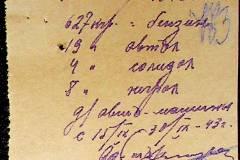 627 кгр. = бензин
19 " автол
4 " солидол
8 " нигрол
для авто-машины
с 15/IX - 30/IX - 43 г.